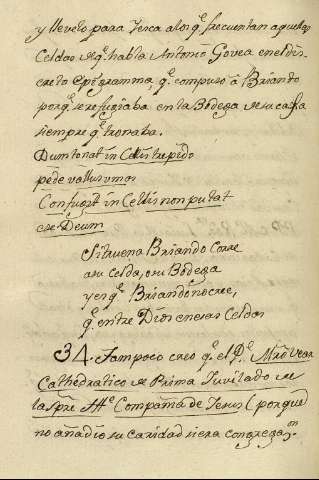 y llevelo para Juca alos q.e frecuentan aquellas
Celdas de q.e habla Antonio Govea en el dis-
creto Epigramma, q.e compuso â Briando
porq.e se refugiaba en la Bodega de su casa
siempre q.e tronaba.
Dum tonat in Cellas trepido
pede
Confugit in Cellis non putat
esse Deum
Si truena Briando Corre
a su Celda, o su Bodega
y es q.e Briando no cree,
q.e entre Dios en esas Celdas
34. Tampoco creo q.e el P.e Mro
Cathedratico de Prima Juvilado de
la Comp­añia de Jesus (porque
no añadio su caridad si era congreg.on